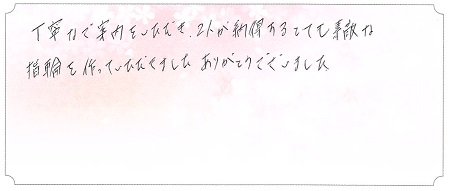 丁寧なご案内をいただき、2人が納得するとても素敵な
指輪を作っていただきました ありがとうございました